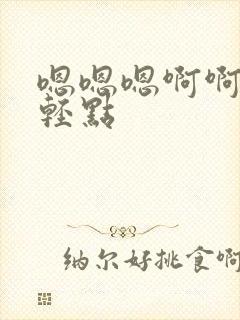 嗯嗯嗯啊啊
輕點
纳尔好挑食啊